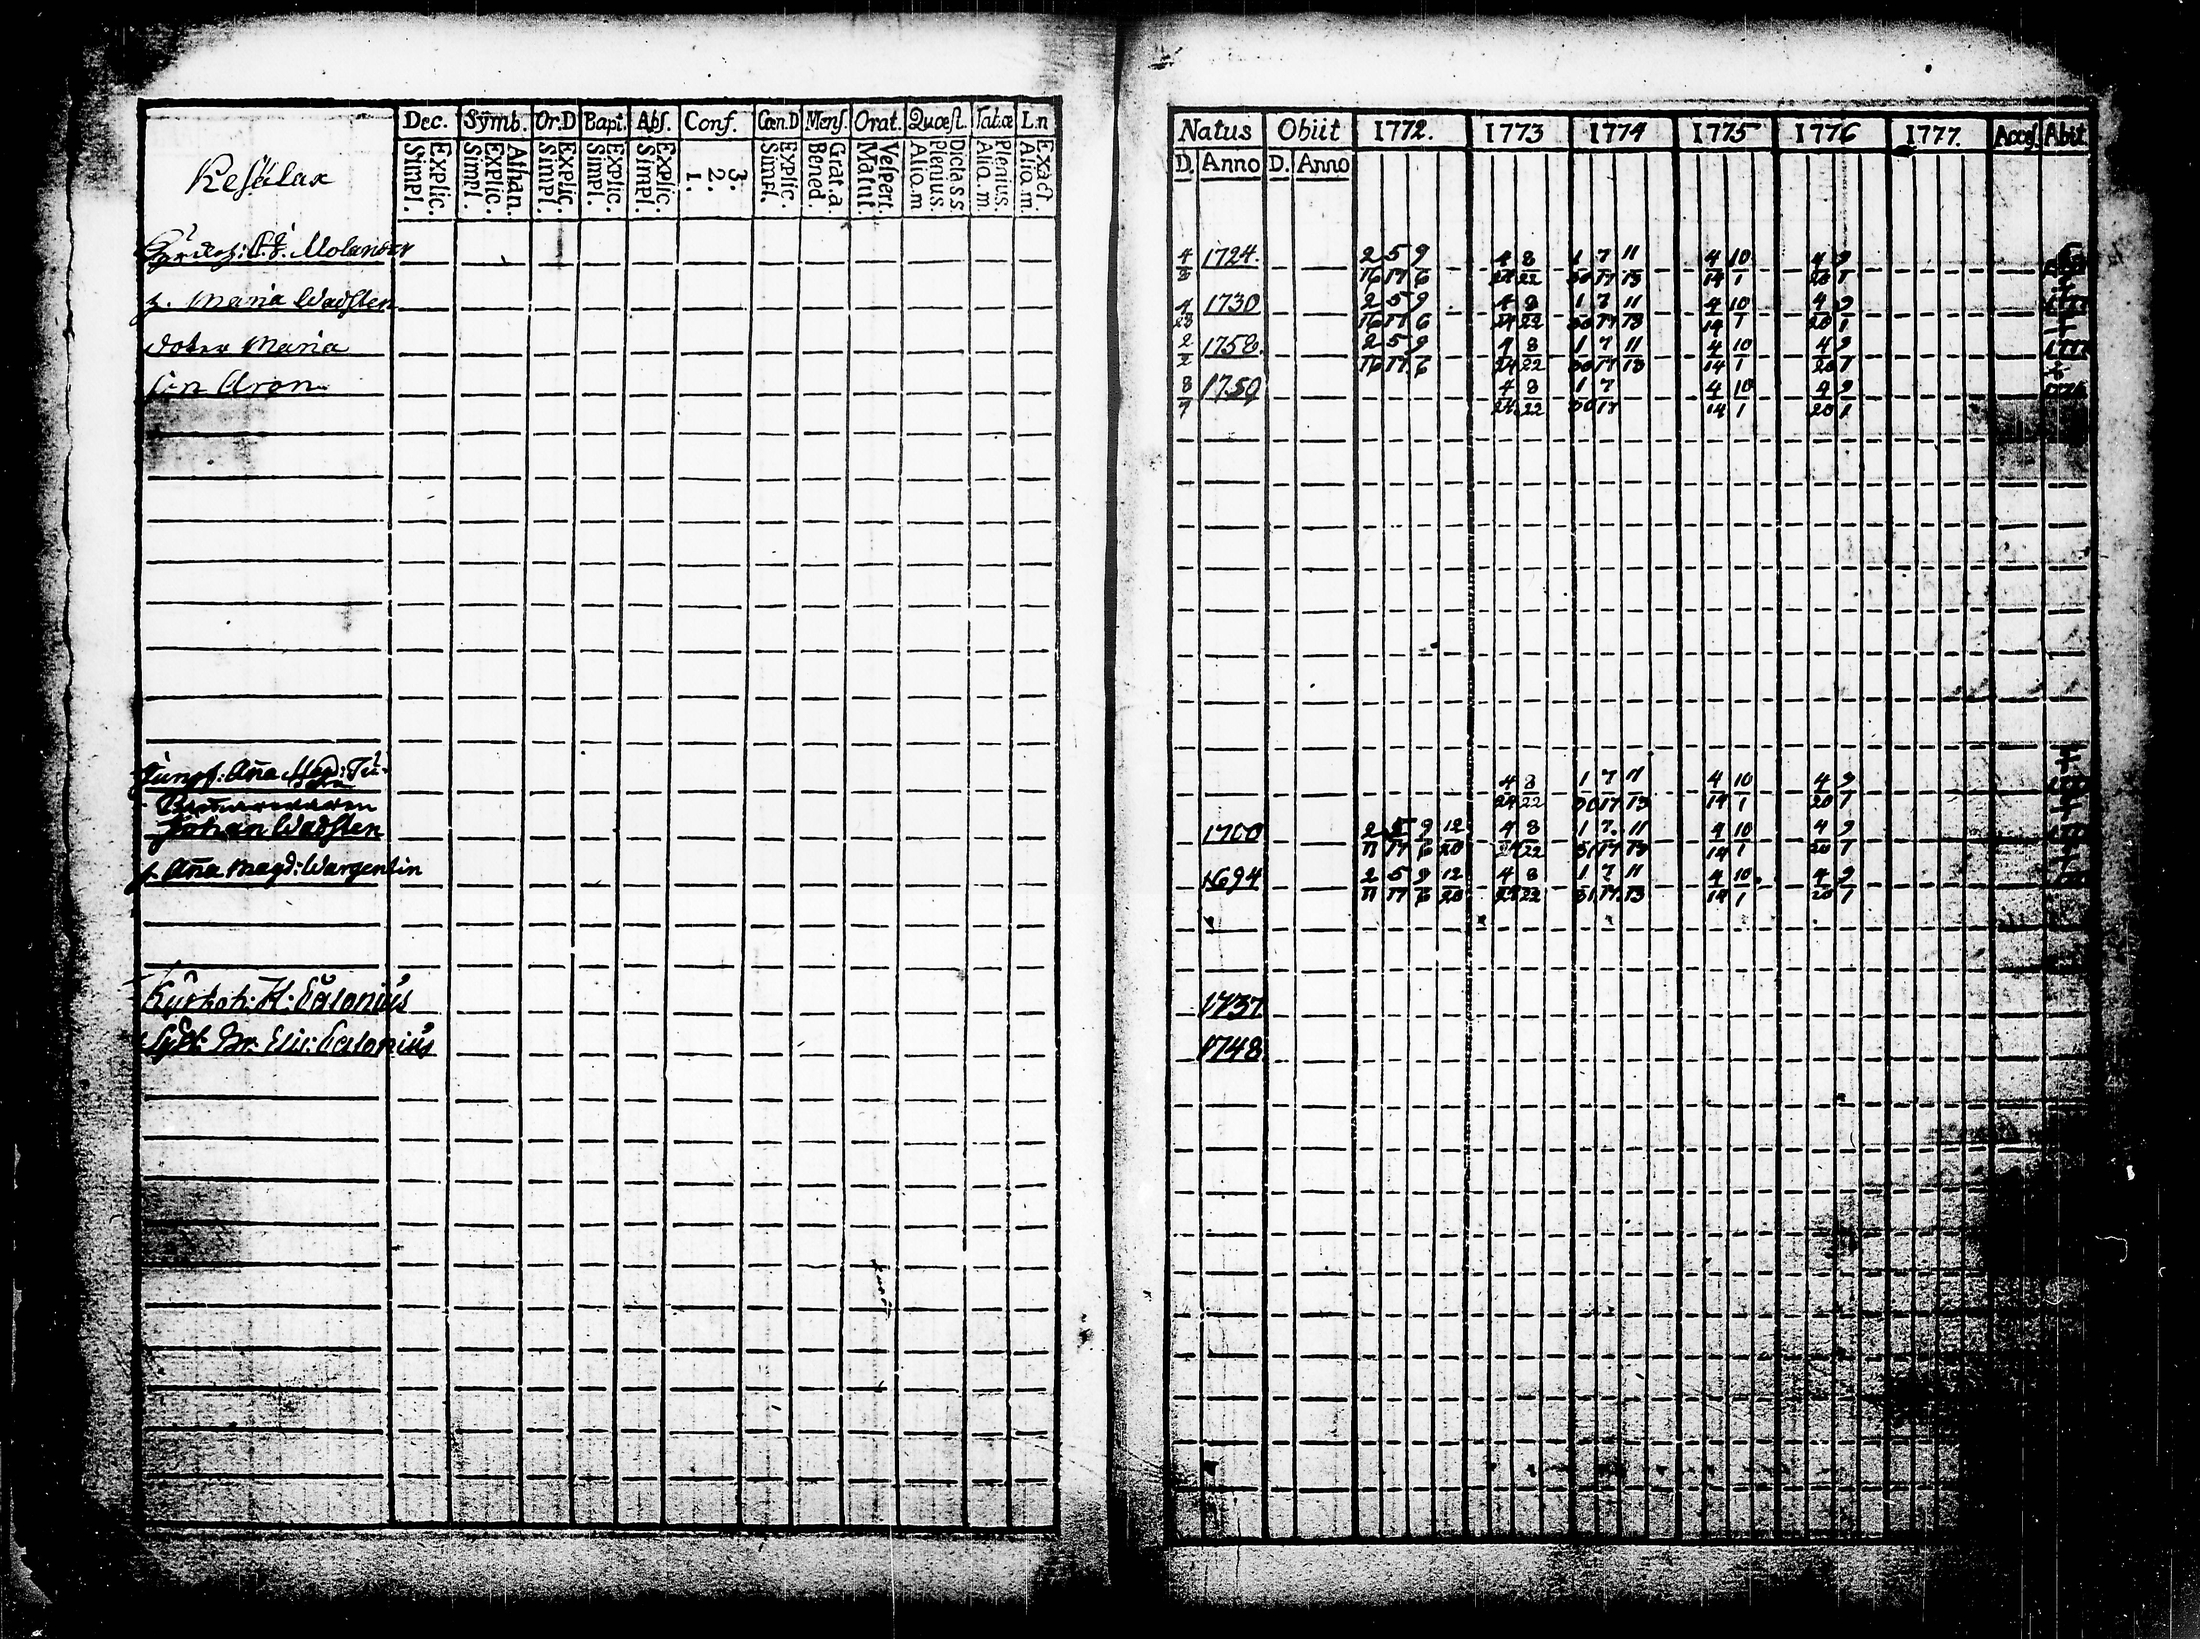 Dec. Symb. Or.D Bapt. Abs. Conf. Cœn.D Mens. Orat. Quæst. Tabæ L.n
Explic. Simpl. Athan. Explic. Simpl. Explic. Simpl. Explic. Simpl. Explic. Simpl. 3. 2. 1. Explic. Simpl. Grat.a. Bened. Vespert. Matut. Dicta S.S. Plenius. Aliq.m Plenius. Aliq.m. Exact. Aliq.m.
Natus Obiit 1772. 1773 1774 1775 1776 1777. Acces. Abit
D. Anno D. Anno
Molander 4/8 1724 2/16 5/17 9/6 4/24 8/22 1/30 7/17 11/13 4/14 10/1 4/20 9/1
h. Maria Wadsten 4/23 1730 2/16 5/17 9/6 4/24 8/22 1/30 7/17 11/13 4/14 10/1 4/20 9/1
doter Maria 2/2 1758. 2/16 5/17 9/6 4/24 8/22 1/30 7/17 11/13 4/14 10/1 4/20 9/1
son Aron 8/7 1759 4/24 8/22 1/30 7/17 4/14 10/1 4/20 9/1
Aña Magd: 4/24 8/22 1/30 7/17 11/13 4/14 10/1 4/20 9/1
Johan Wadsten 1700 2/11 5/17 9/6 12/20 4/24 8/22 1/31 7/17 11/13 4/14 10/1 4/20 9/1
h. Aña Magd: Wargentin 1694 2/11 5/17 9/6 12/20 4/24 8/22 1/31 7/17 11/13 4/14 10/1 4/20 9/1
H: Calonius 1737
Elis: Calonius 1748